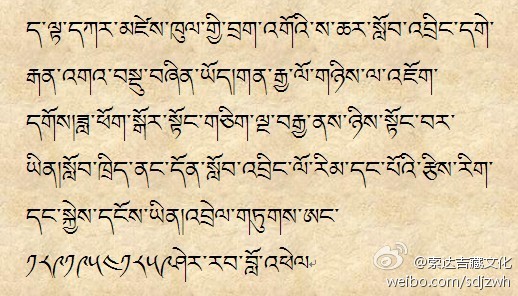 ད་ལྟ་དཀར་མཛེས་ཁུལ་གྱི་བྲག་འགོའི་ས་ཆར་སློབ་འབྲིང་དགེ་
རྒན་འགའ་བསྡུ་བཞིན་ཡོད།གན་རྒྱ་ལོ་གཉིས་ལ་འཇོག་
དགོས།ཟླ་ཕོག་སྒོར་སྟོང་གཅིག་ལྔ་བརྒྱ་ནས་ཉིས་སྟོང་བར་
ཡིན།སློབ་ཁྲིད་ནང་དོན་སློབ་འབྲིང་ལོ་རིམ་དང་པོའི་རྩིས་རིག་
དང་སྐྱེས་དངོས་ཡིན།འབྲེལ་གཏུགས་ཨང་
༡༨༩༡༩༥༤༡༨༥༩ཤེར་རབ་བློ་འཕེལ
@索达吉藏文化
weibo.com/sdjzwh